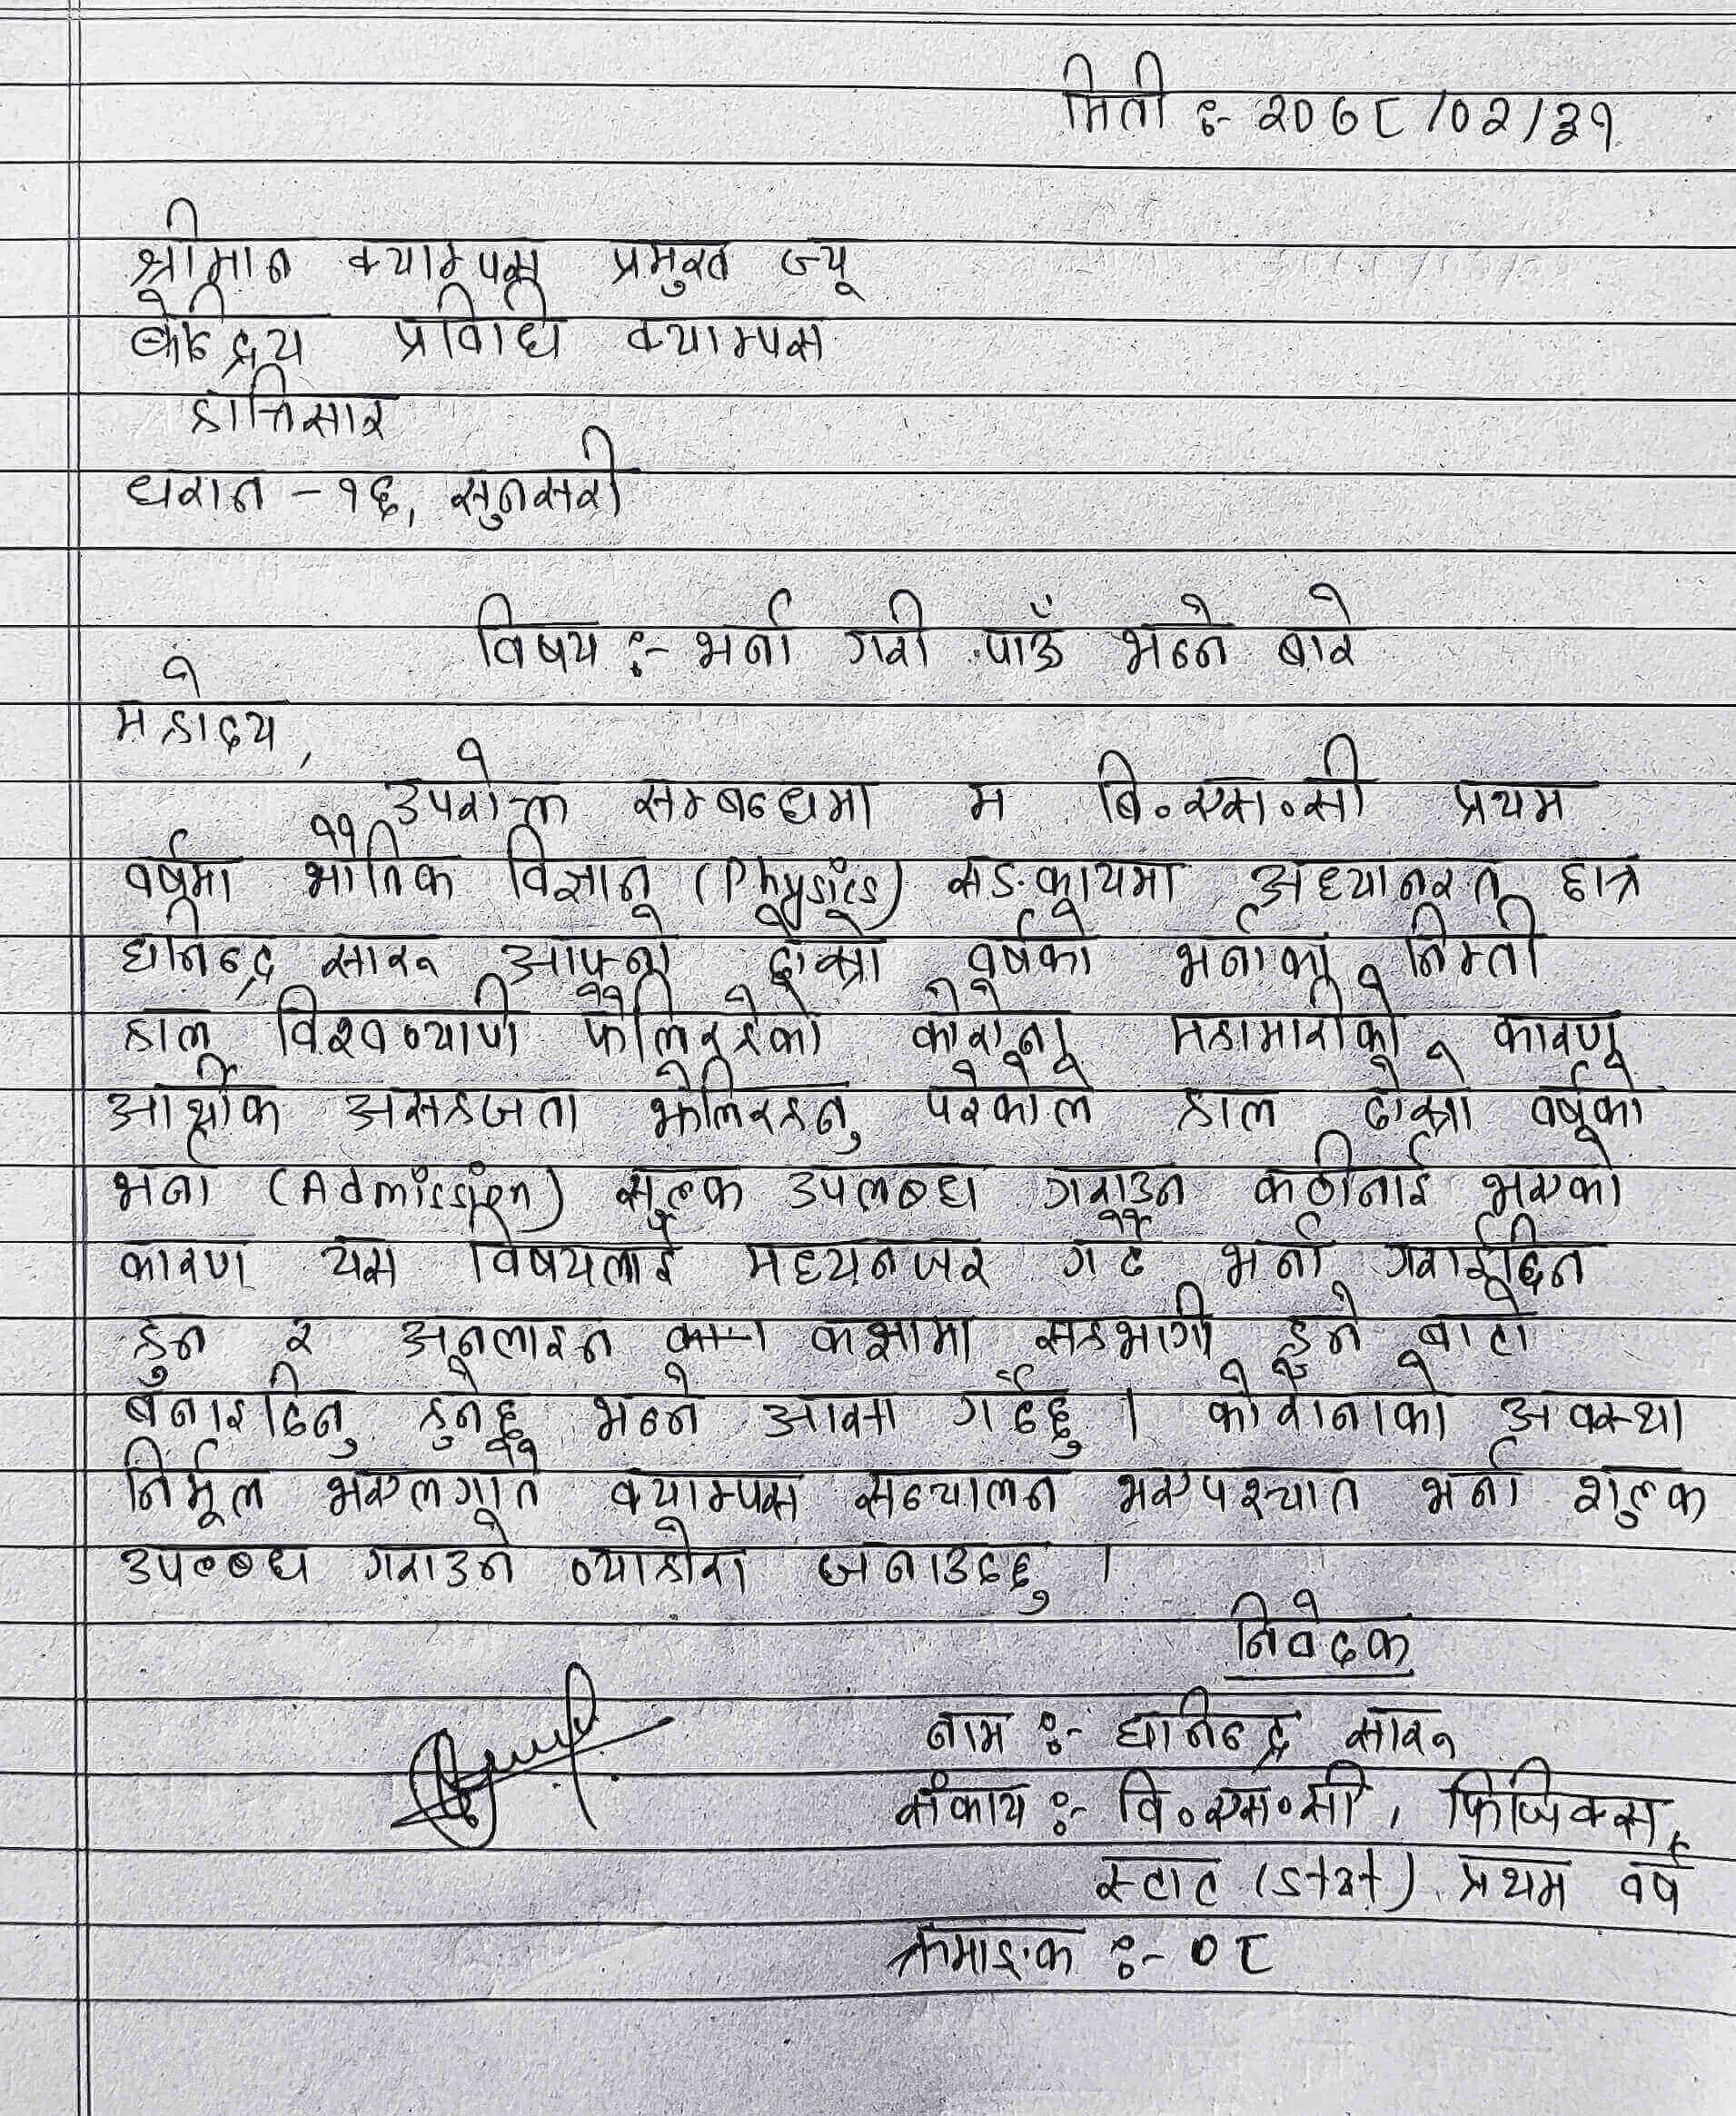 मिती :- २०७८/०२/३१
श्रीमान क्याम्पस प्रमुख ज्यू
केन्द्रिय प्रविधि क्याम्पस
हात्तिसार
धरान - १६, सुनसरी
विषय :- भर्ना गरी पाऊँ भन्ने बारे
महोदय,
उपरोक्त सम्बन्धमा म बि॰एस॰सी प्रथम
वर्षमा भौतिक विज्ञान (Physics) सङ्कायमा अध्यानरत छात्र
धनिन्द्र सारु आफ्नो दोस्रो वर्षको भर्नाका निम्ती
हाल विश्वव्यापी फैलिरहेको कोरोना महामारीको कारण
आर्थीक असहजता झेलिरहनु परेकोले हाल दोस्रो वर्षको
भर्ना (Admission) सुल्क उपलब्ध गराउन कठीनाई भएको
कारण यस विषयलाई मध्यनजर गर्दै भर्ना गराईदिन
हुन र अनलाइन कक्षामा सहभागी हुने बाटो
बनाइदिनु हुनेछ भन्ने आसा गर्दछु । कोरोनाको अवस्था
निर्मूल भएलगत्तै क्याम्पस सञ्चालन भएपश्चात भर्ना शुल्क
उपल्बध गराउने व्याहोरा जनाउदछु ।
निवेदक
नाम :- धनिन्द्र सारु
संकाय :- वि॰एस॰सी, फिजिक्स,
स्टाट (stat) प्रथम वर्ष
क्रमाङ्क :- ०८